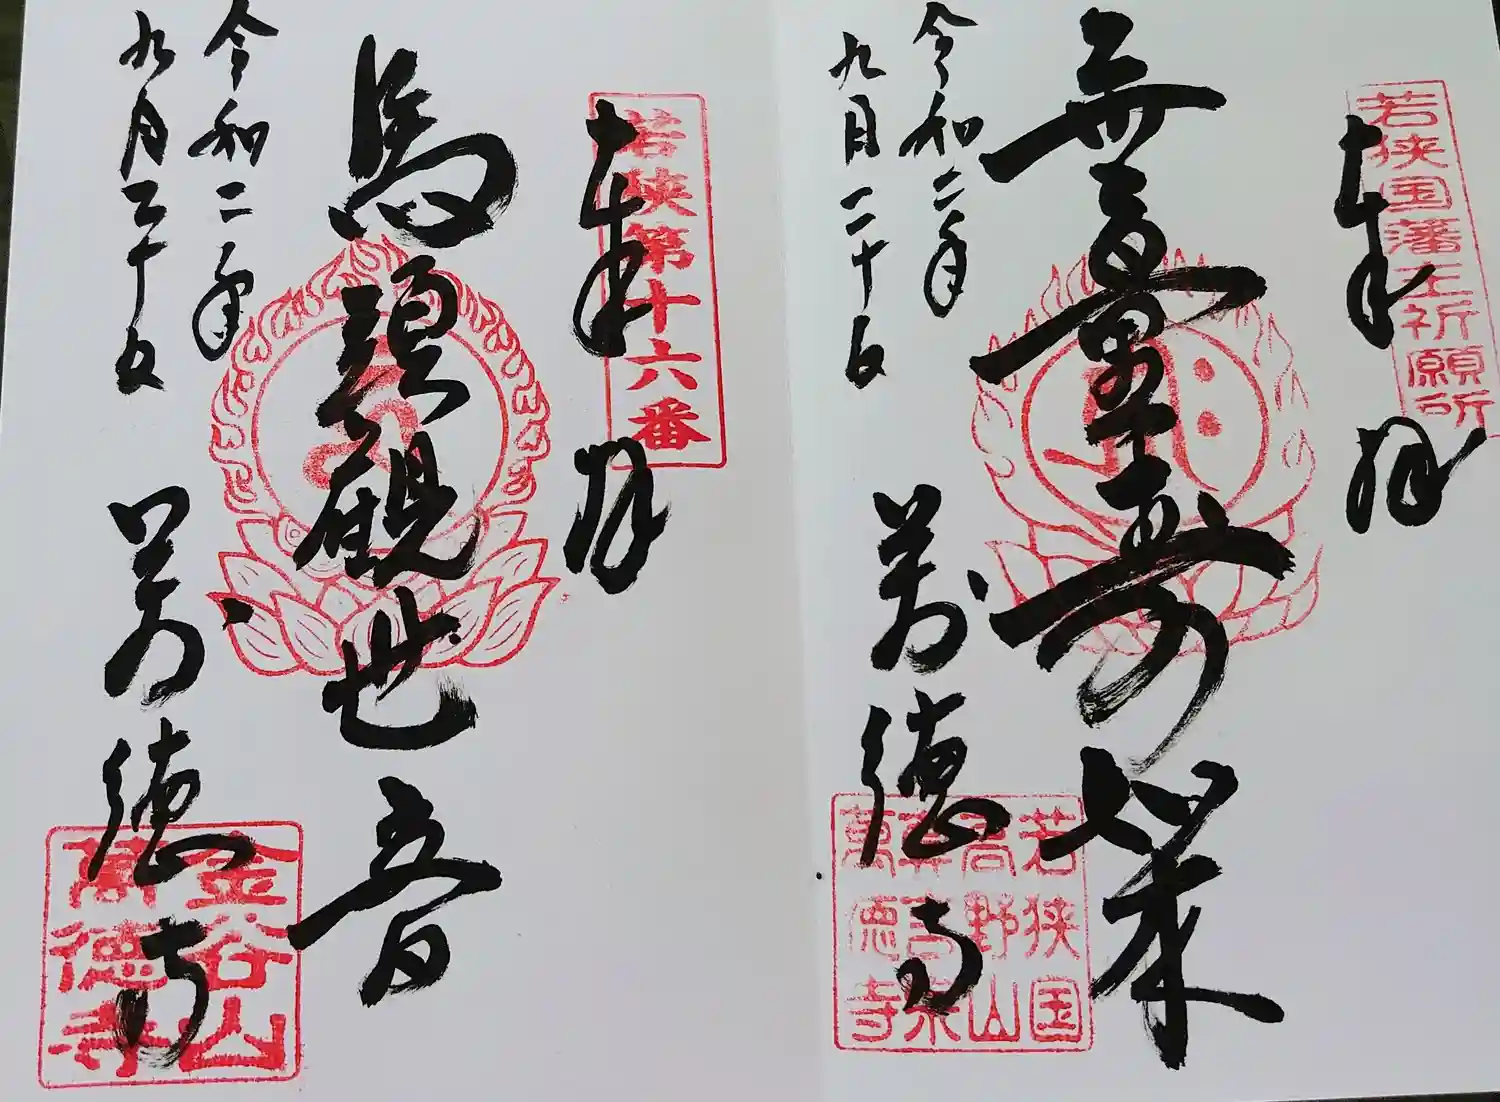 若狭国藩主祈願所
奉拝
無量寿殿
令和二年
九月二十日
萬德寺
若狭国
高野山
真言宗
萬德寺
若狭第十六番
奉拝
馬頭觀世音
令和二年
九月二十日
萬德寺
金谷山
萬德寺